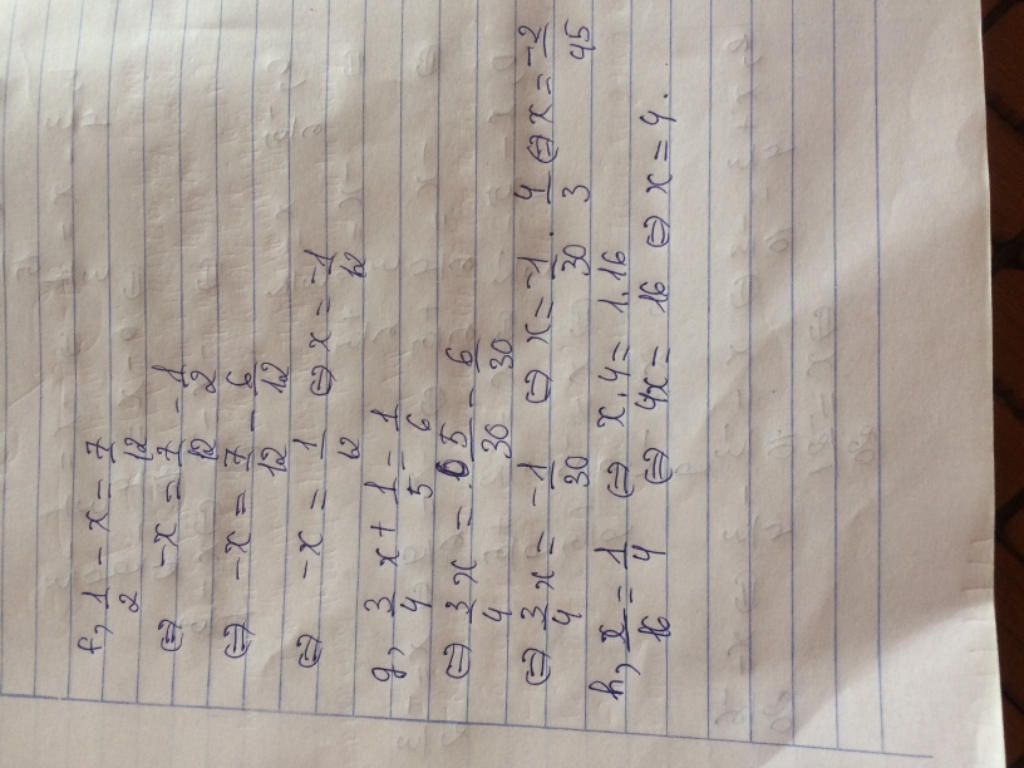 f, 1/2 - x = 7/12
⇔ -x = 7/12 - 1/2
⇔ -x = 7/12 - 6/12
⇔ -x = 1/12 ⇔ x = -1/12
g, 3/4 x + 1/5 = 1/6
⇔ 3/4 x = 5/30 - 6/30
⇔ 3/4 x = -1/30 ⇔ x = -1/30 . 4/3 ⇔ x = -2/45
h, x/16 = 1/4 ⇔ x.4 = 1.16
⇔ 4x = 16 ⇔ x = 4.